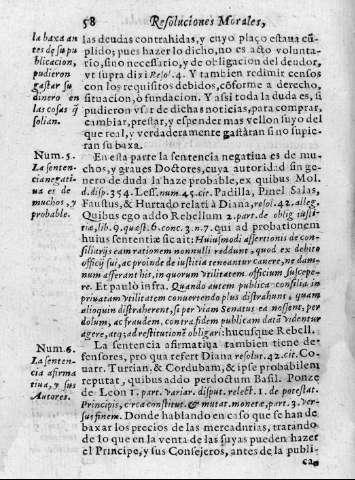 58 Resoluciones Morales,
la baxa an
tes de su pu
blicacion,
pudieron
gastar su
dinero en
las cosas q̃
solian.
las deudas contrahidas, y cuyo plaço estaua cũ-
plido; pues hazer lo dicho, no es acto volunta-
rio, sino necessario, y de obligacion del deudor,
vt supra dixi Resol. 4. Y tambien redimir censos
con los requisitos debidos, cõforme a derecho,
situacion, ò fundacion. Y assi toda la duda es, si
pudieron vsar de dichas noticias, para comprar,
cambiar, prestar, y espender mas vellon suyo del
que real, y verdaderamente gastàran si no supie-
ran su baxa.
Num. 5.
La senten-
cia negati-
ua es de
muchos, y
probable.
En esta parte la sentencia negatiua es de mu-
chos, y graues Doctores, cuya autoridad sin ge-
nero de duda la haze probable, ex quibus Mol.
d. disp. 354. Less. num. 45. cit. Padilla, Pinel Salas,
Faustus, & Hurtado relati à Diana, resol. 42. alleg.
Quibus ego addo Rebellum 2. part. de oblig iusti-
tiæ, lib. 9. quæst. 6. conc. 3. n. 7. qui ad probationem
huius sententiæ sic ait: Huiusmodi assertionis de con-
siliarijs eam rationem nonnulli reddunt, quod ex debito
officij sui, ac proinde de iustitia teneantur cauere, ne dam-
num afferant his, in quorum vtilitatem officium suscepe-
re. Et paulò infra. Quando autem publica consilia in
priuatam vtilitatem conuertendo plus distrahunt, quam
alioquin distraherent, si per viam Senatus ea nossent, per
dolum, ac fraudem, contra fidem publicam datã videntur
agere, atq; ad restitutionẽ obligari: hucusque Rebell.
Num. 6.
La senten-
cia afirma
tiua, y sus
Autores.
La sentencia afirmatiua tambien tiene de-
fensores, pro qua refert Diana resolut. 42. cit. Co-
uarr. Turrian. & Cordubam, & ipse probabilem
reputat, quibus addo perdoctum Basil. Ponze
de Leon 1. part. variar. disput. relect. 1. de potestat.
Principis, circa constitut. & mutat. monetæ, part. 3. ver-
sus finem. Donde hablando en caso que se han de
baxar los precios de las mercadurias, tratando
de lo que en la venta de las suyas pueden hazer
el Principe, y sus Consejeros, antes de la publi-
ca-